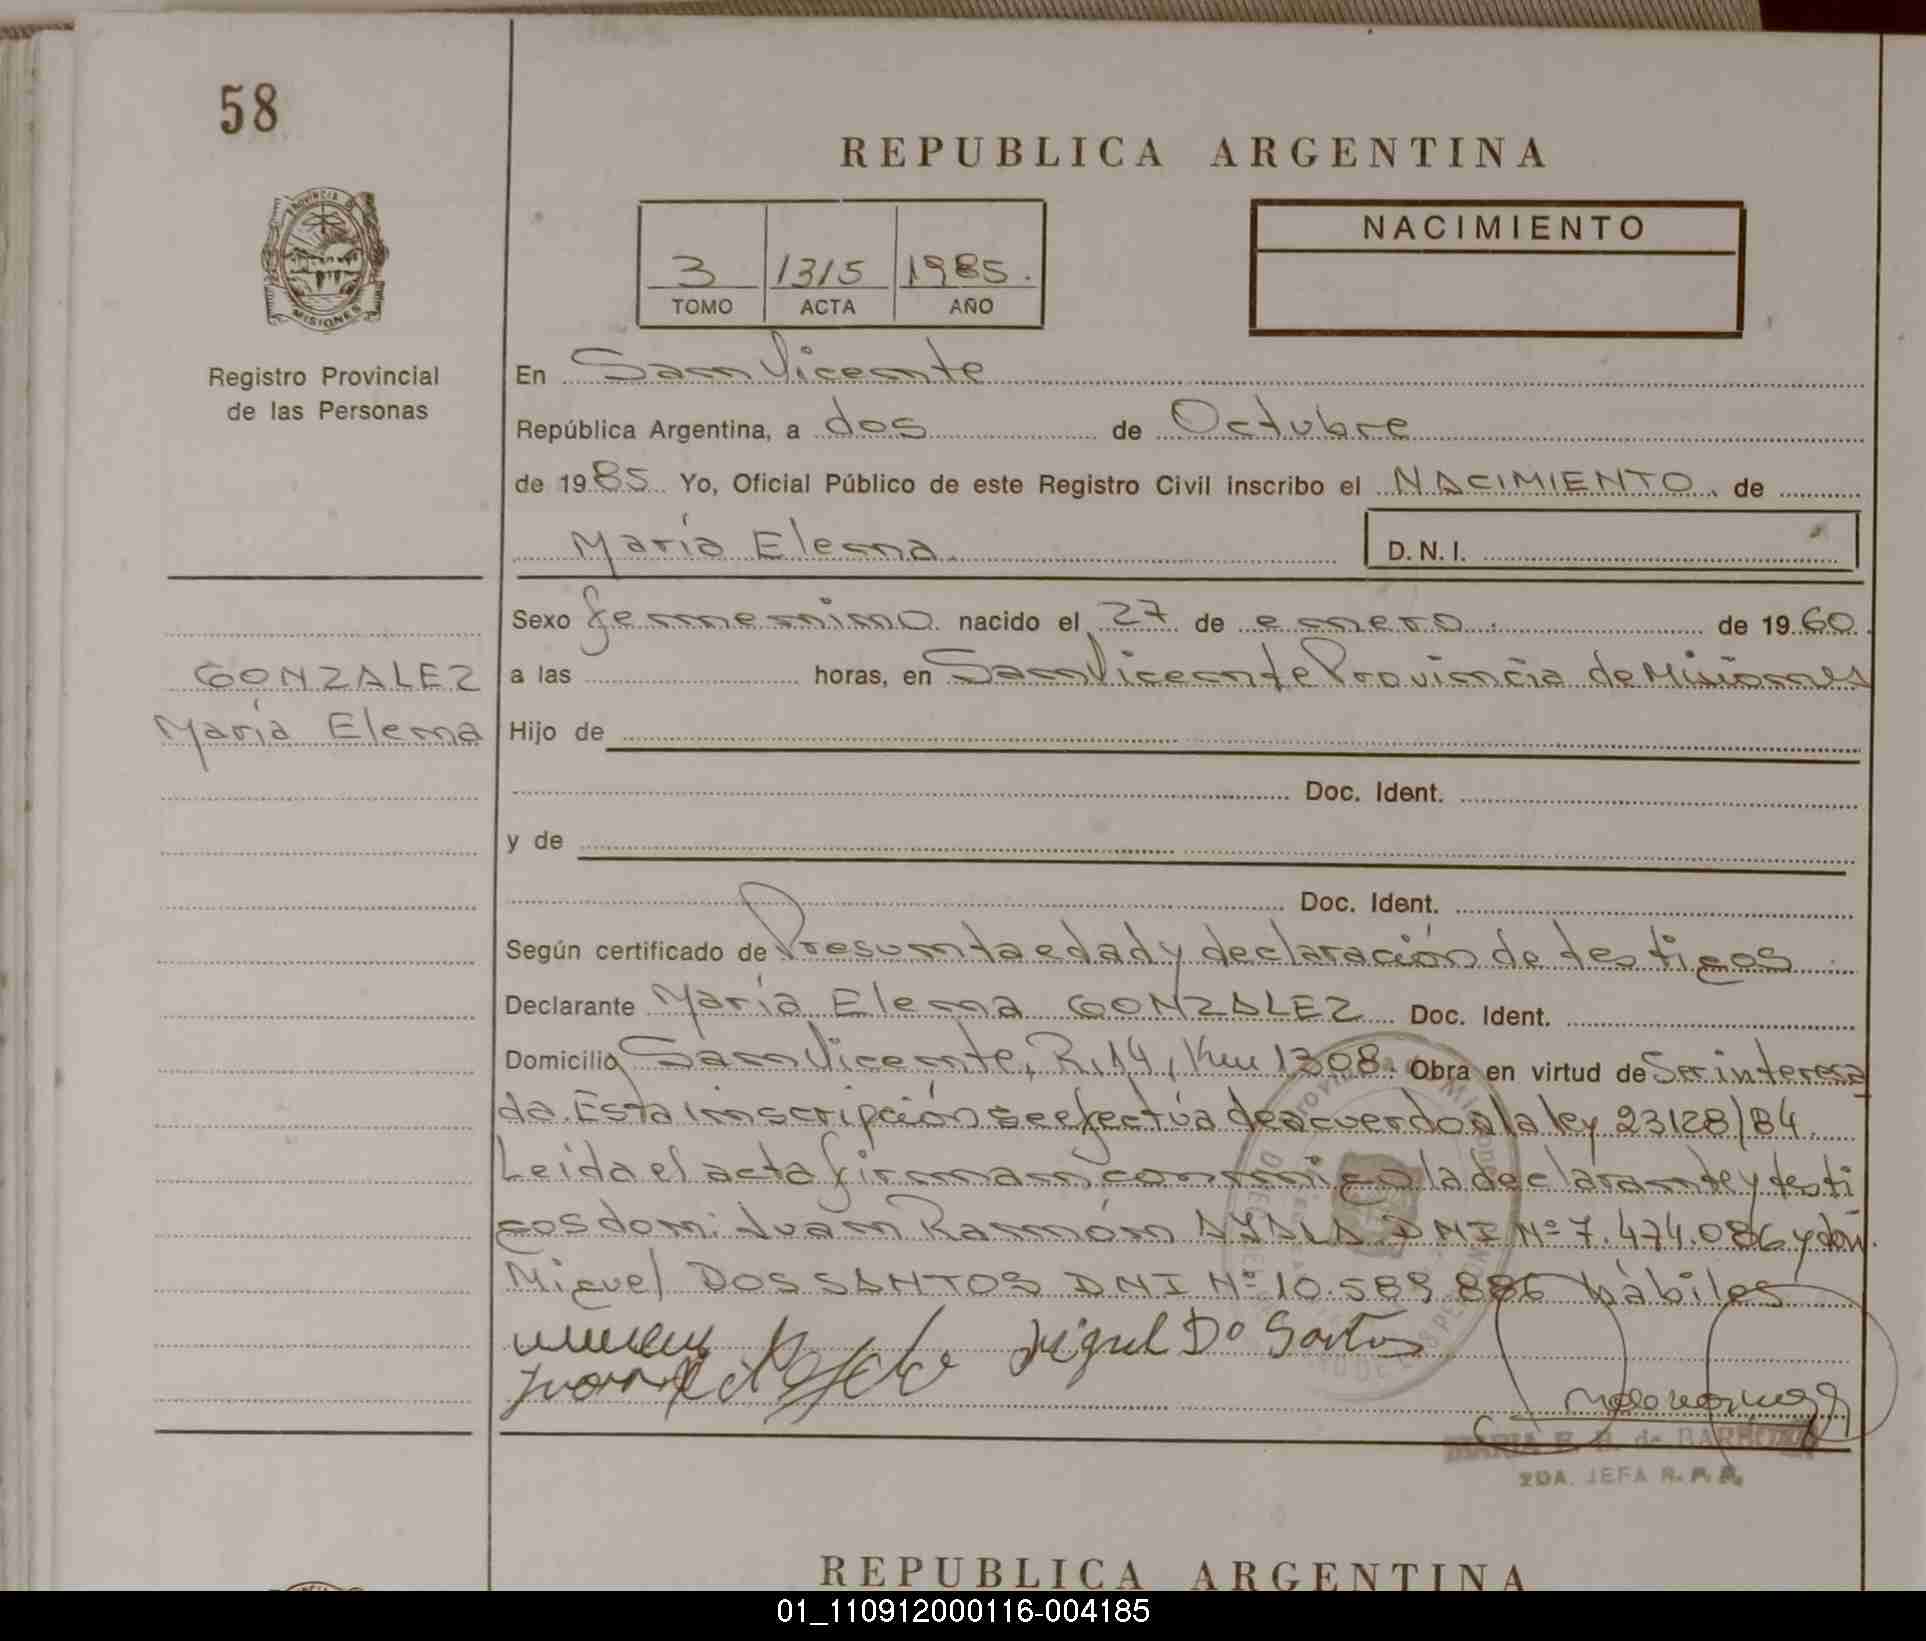 58
REPUBLICA ARGENTINA
PROVINCIA DE
MISIONES
NACIMIENTO
3 1315 1985.
TOMO ACTA AÑO
Registro Provincial
de las Personas
En San Vicente
República Argentina, a dos de Octubre
de 1985 Yo, Oficial Público de este Registro Civil inscribo el NACIMIENTO de
María Elena D.N.I.
Sexo femenino nacido el 27 de enero de 1960
GONZALEZ
María Elena
a las horas, en San Vicente Provincia de Misiones
Hijo de
Doc. Ident.
y de
Doc. Ident.
Según certificado de Presunta edad y declaración de testigos
Declarante María Elena GONZALEZ Doc. Ident.
Domicilio San Vicente, R.14, Km 1308. Obra en virtud de Ser interesa
da. Esta inscripción se efectúa de acuerdo a la ley 23128/84.
Leida el acta firman conmigo la declarante y testi
gos don: Juan Ramón AYALA DNI Nº 7.474.086 y don
Miguel DOS SANTOS DNI Nº 10.589.886 hábiles
Miguel Do Santos
MARIA E. B. de BARBOZA
2DA. JEFA R. P. P.
REPUBLICA ARGENTINA
01_110912000116-004185